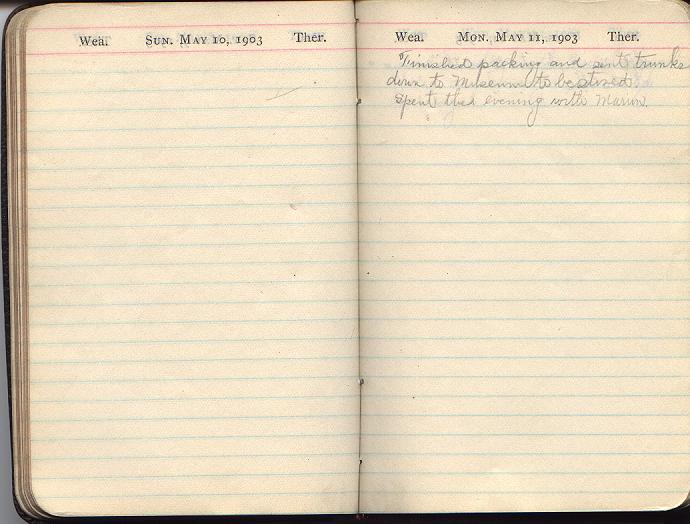 Wea. Sun. May 10, 1903 Ther.
Wea. Mon. May 11, 1903 Ther.
Finished packing and sent trunks
down to Museum to be stored.
Spent the evening with Marvin.